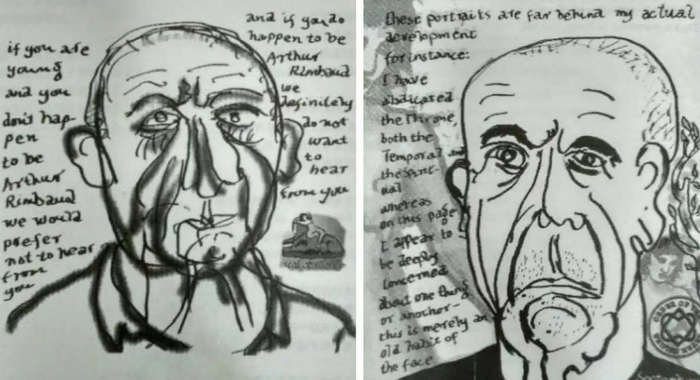 if you are
young
and you
don't hap-
pen
to be
Arthur
Rimbaud
we would
prefer
not to hear
from
you
and if you do
happen to be
Arthur
Rimbaud
we
definitely
do not
want
to
hear
from you
these portraits are far behind my actual
development
for instance:
I have
abdicated
the Throne,
both the
Temporal and
the Spirit-
ual
whereas
on this page
I appear to
be deeply
concerned
about one thing
or another—
this is merely an
old habit of
the face